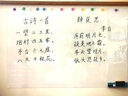 古诗一首
一望二三里，
烟村四五家，
亭台六七座，
八九十枝花。
静夜思
李白
床前明月光，
疑是地上霜。
举头望明月，
低头思故乡。